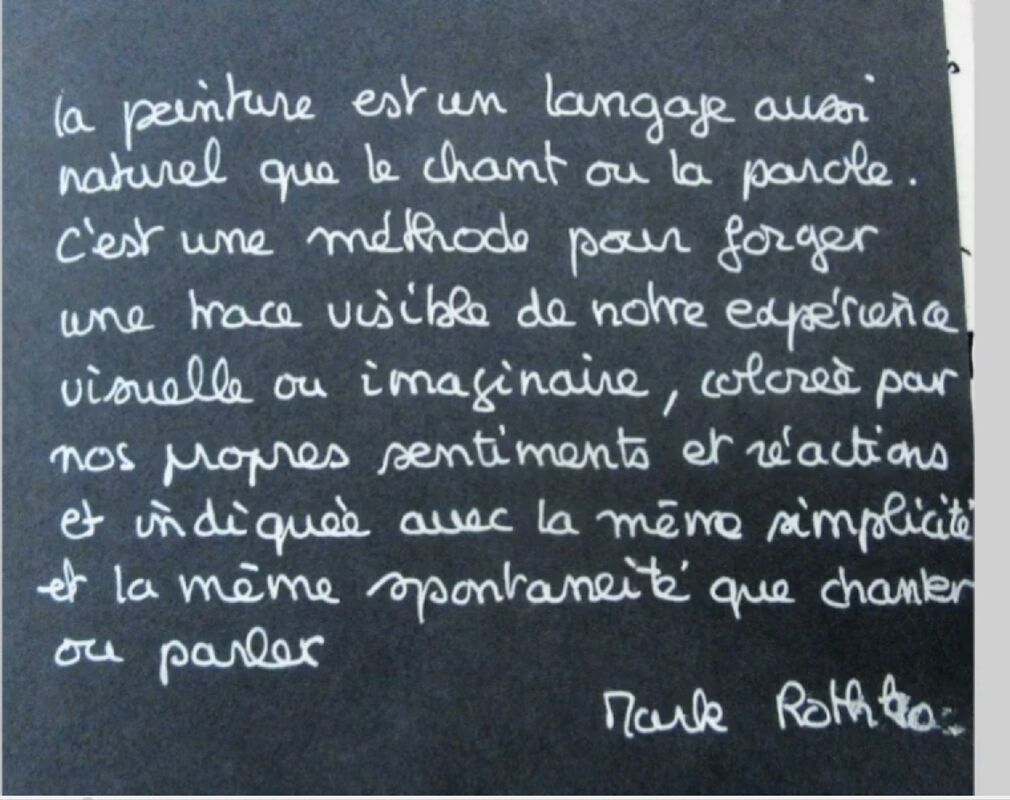 la peinture est un langage aussi
naturel que le chant ou la parole.
c'est une méthode pour forger
une trace visible de notre expérience
visuelle ou imaginaire, colorée par
nos propres sentiments et réactions
et indiquée avec la même simplicité
et la même spontaneité que chanter
ou parler
Mark Rothko